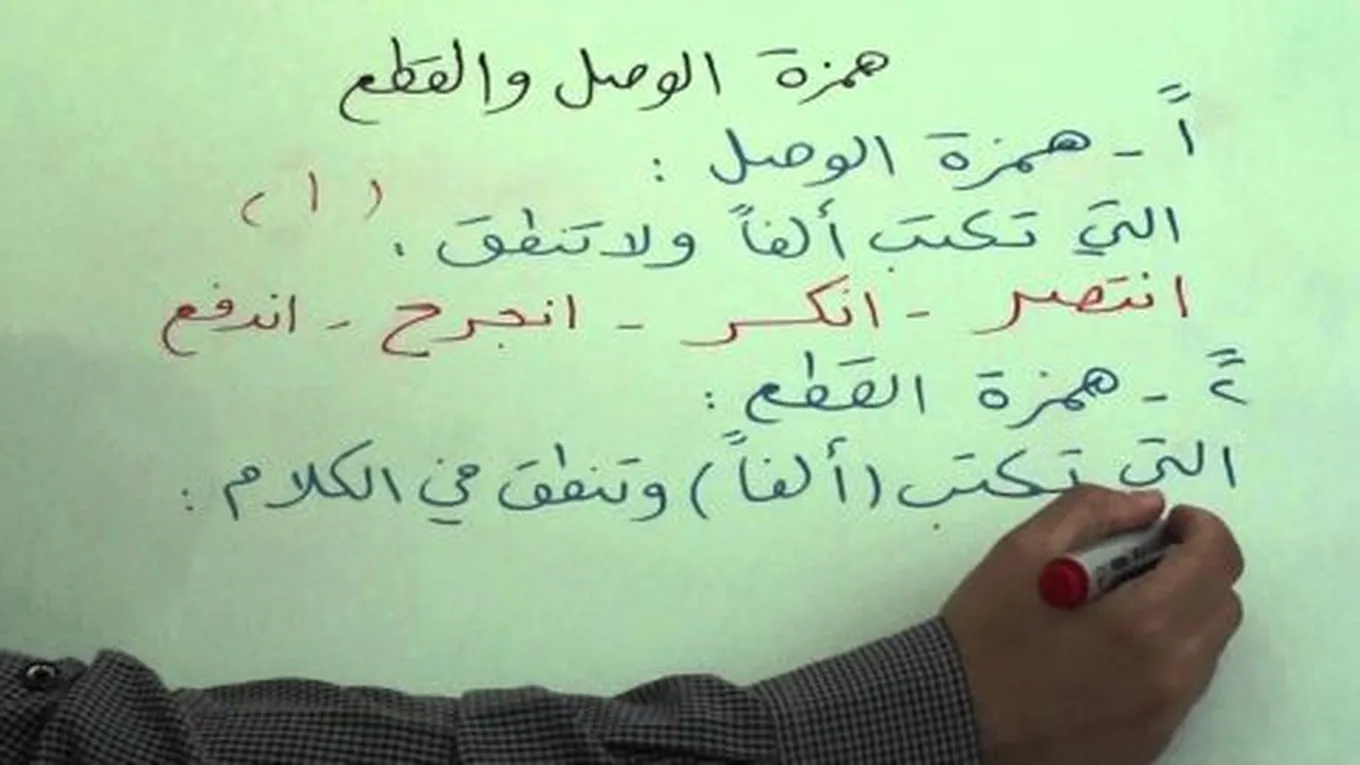 همزة الوصل والقطع
١ - همزة الوصل :
التي تكتب ألفاً ولا تنطق . ( ا )
انتصر - انكسر - انجرح - اندفع
٢ - همزة القطع :
التي تكتب (ألفاً) وتنطق في الكلام :